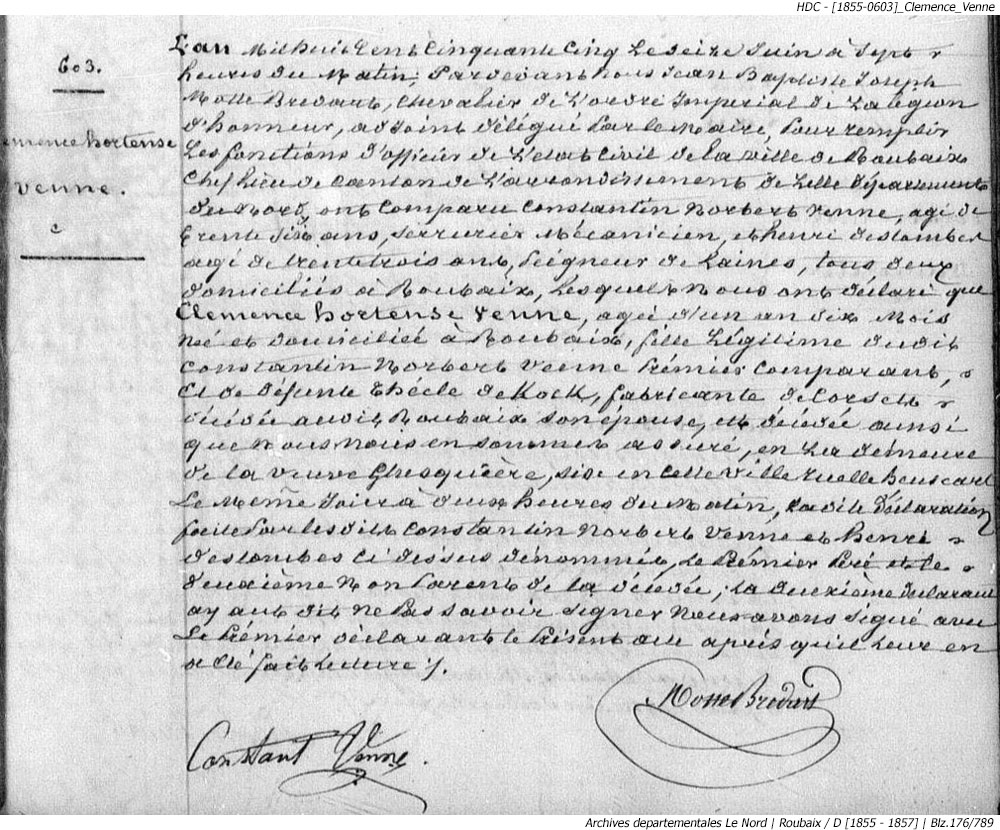 HDC - [1855-0603]_Clemence_Venne
603.
emence hortense
Venne.
L'an Mil huit Cent Cinquante Cinq Le Seize Juin à Sept
heures du Matin, Pardevant nous Jean Baptiste Joseph
Motte Bredart, Chevalier de L'ordre Imperial de La Legion
d'honneur, adjoint délégué Par le Maire, Pour remplir
Les fonctions d'officier de L'etat Civil de la ville de Roubaix
Chef Lieu de Canton de L'arrondissement de Lille Département
du Nord, ont Comparu Constantin Norbert Venne, agé de
trente Six ans, Serrurier Mécanicien, et henri destombes
agé de trente trois ans, Peigneur de Laines, tous deux
domiciliés à Roubaix, Lesquels Nous ont déclaré que
Clemence hortense Venne, agée d'un an dix Mois
Née et domiciliée à Roubaix, fille Légitime dudit
Constantin Norbert Venne Prémier Comparant,
Et de défunte Thécle de Kock, fabricante de Corsets
décédée audit Roubaix Son épouse, est décédée ainsi
que Nous Nous en Sommes assuré, en La demeure
de la veuve Ghesquière, Sise en Cette Ville Ruelle
Le Même Jour à deux heures du Matin, La dite Déclaration
faite Par Lesdits Constantin Norbert Venne et henri
destombes Ci dessus dénommés, Le Prémier Peré et le
deuxième Non Parent de la décédée, La deuxième déclarant
ayant dit ne Pas Savoir Signer Nous avons Signé avec
Le Prémier déclarant le Présent acte après qu'il Leur en
a été fait Lecture.
Motte Bredart
Constant Venne.
Archives departementales Le Nord | Roubaix / D [1855 - 1857] | Blz.176/789